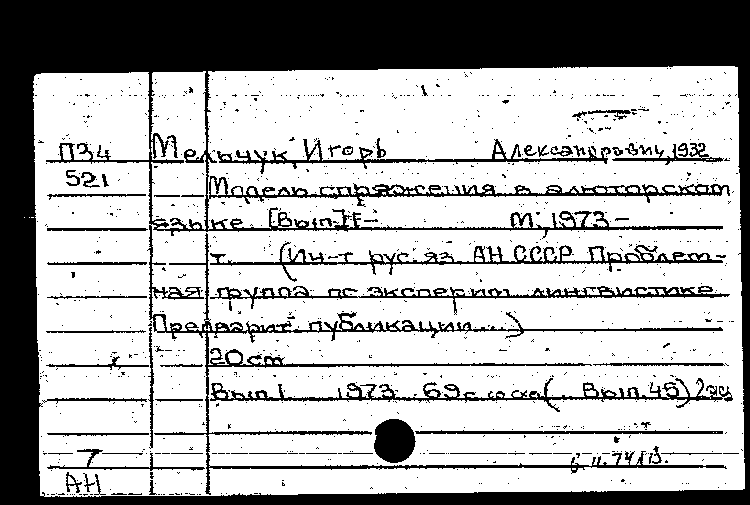 П34 Мельчук, Игорь Александрович, 1932
521 Модель спряжения в алюторском
языке. [Вып.] I- М., 1973 -
т. (Ин-т рус. яз. АН СССР Проблем-
ная группа по эксперим. лингвистике
Предварит. публикации...)
20 cm
Вып. I 1973 69 с. (. Вып. 45)
7
АН